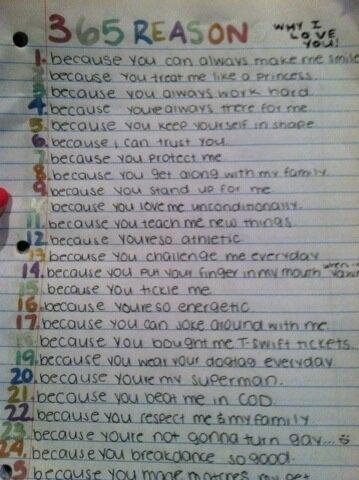 365 REASON WHY I LOVE YOU!
1. because you can always make me smile
2. because you treat me like a princess.
3. because you always work hard.
4. because youre always there for me.
5. because you keep yourself in shape.
6. because i can trust you.
7. because you protect me.
8. because you get along with my family.
9. because you stand up for me.
because you love me unconditionally.
11. because you teach me new things.
12. because youre so athletic
13. because you challenge me everyday
14. because you put your finger in my mouth when i yawn
15. because you tickle me.
16. because youre so energetic.
17. because you can joke around with me.
because you bought me T-swift tickets.
19. because you wear your dogtag everyday
20. because youre my superman.
21. because you beat me in COD.
22. because you respect me & my family.
23. because youre not gonna turn gay...
24. because you breakdance so good.
because you made